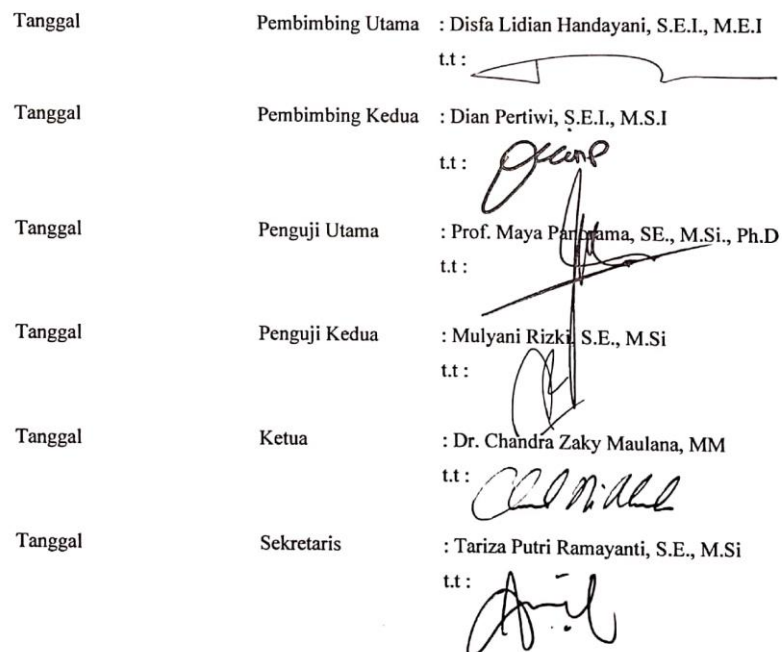 Tanggal Pembimbing Utama : Disfa Lidian Handayani, S.E.I., M.E.I
t.t :
Tanggal Pembimbing Kedua : Dian Pertiwi, S.E.I., M.S.I
t.t :
Tanggal Penguji Utama : Prof. Maya Panorama, SE., M.Si., Ph.D
t.t :
Tanggal Penguji Kedua : Mulyani Rizki, S.E., M.Si
t.t :
Tanggal Ketua : Dr. Chandra Zaky Maulana, MM
t.t :
Tanggal Sekretaris : Tariza Putri Ramayanti, S.E., M.Si
t.t :